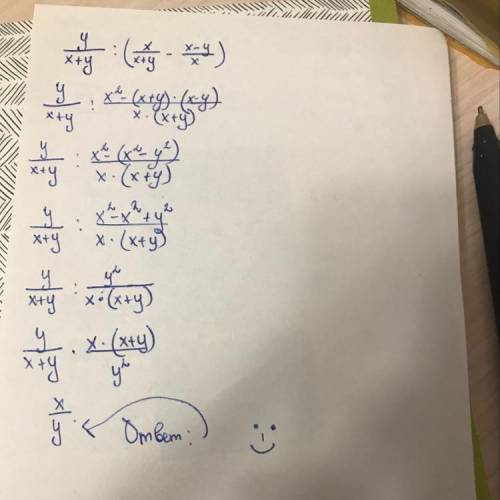 y/(x+y) : (x/(x+y) - (x-y)/x)
y/(x+y) : (x²-(x+y)·(x-y))/(x·(x+y))
y/(x+y) : (x²-(x²-y²))/(x·(x+y))
y/(x+y) : (x²-x²+y²)/(x·(x+y))
y/(x+y) : y²/(x·(x+y))
y/(x+y) · (x·(x+y))/y²
x/y. Ответ: